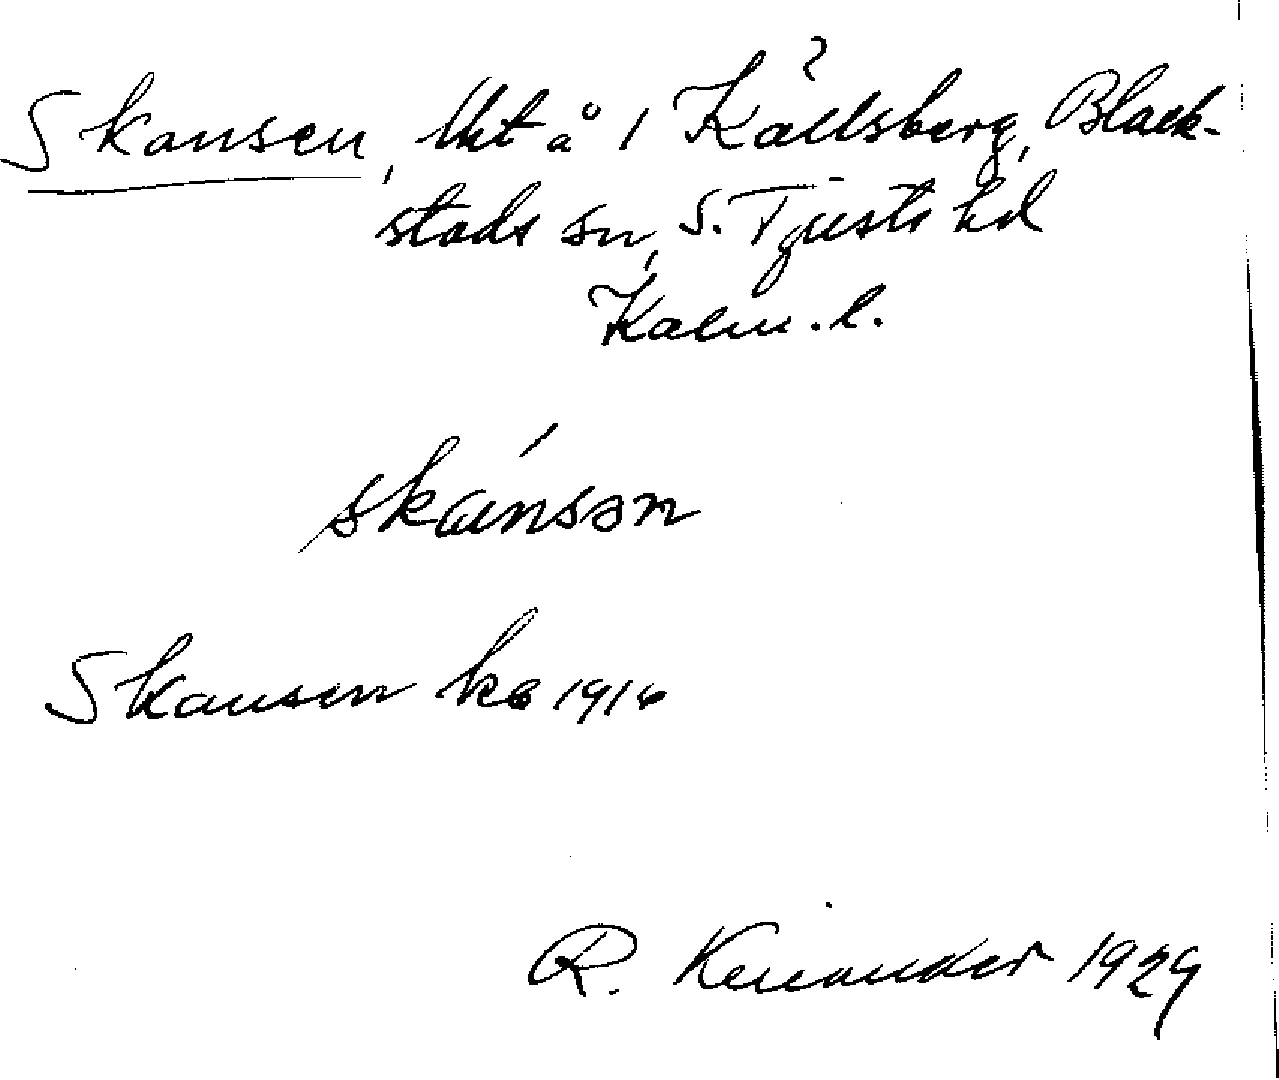 Skansen, lht å 1 Källsberg, Black-
stads sn, S. Tjusts hd
Kalm. l.
skánsən
Skansen kb 1916
R. Kenander 1929